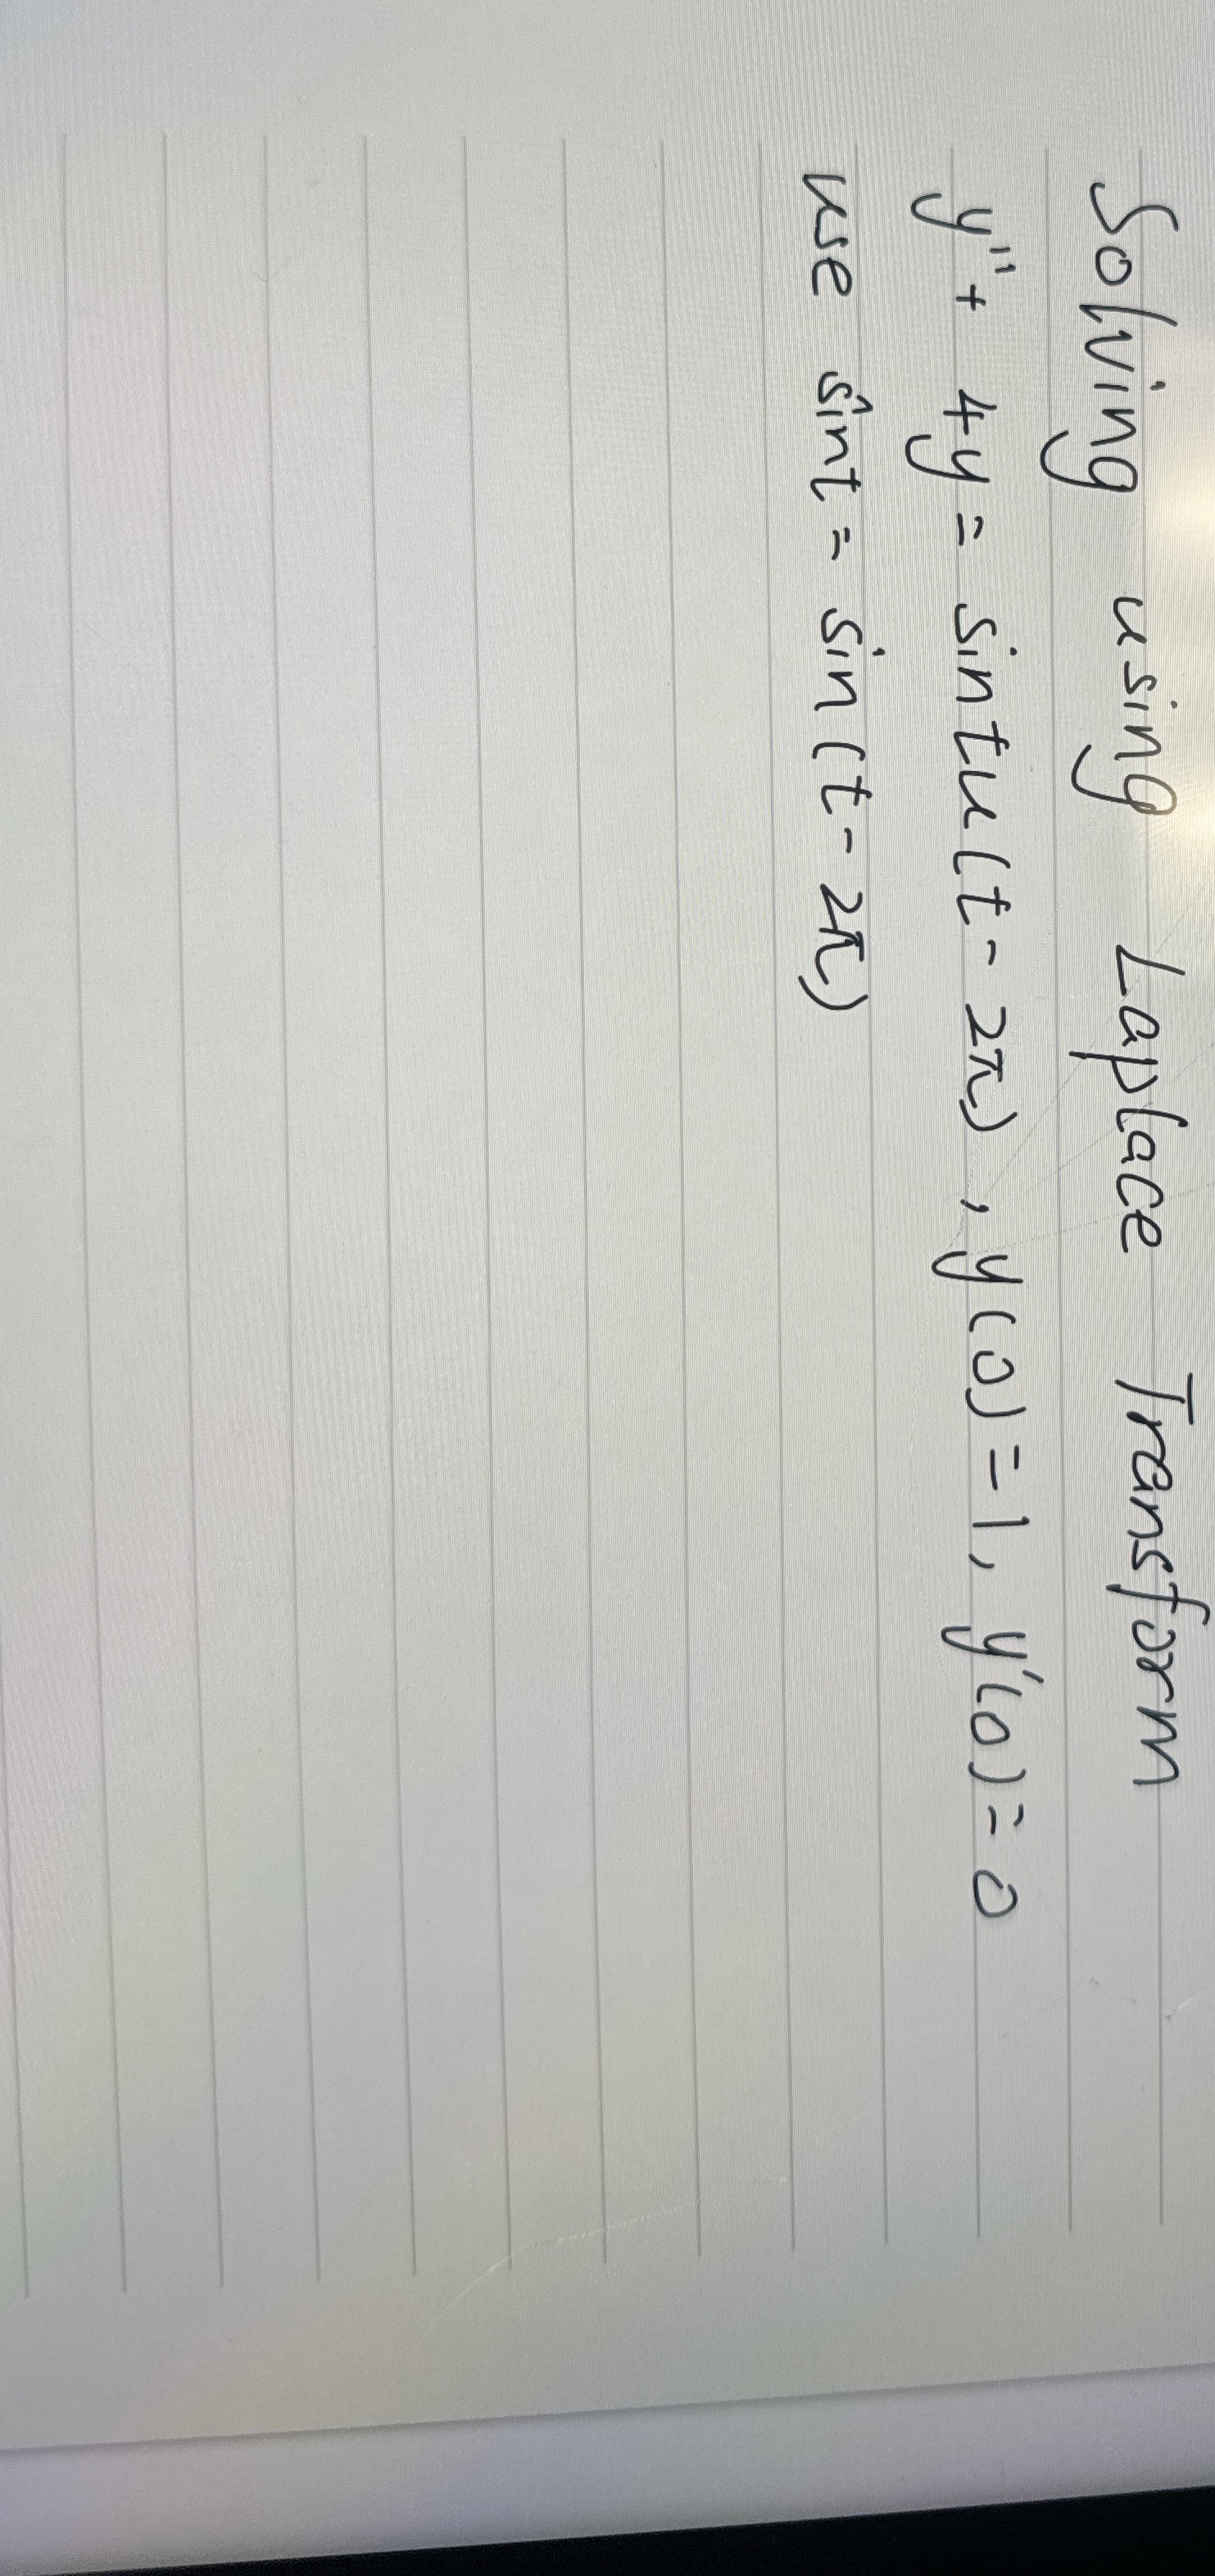 Solving using Laplace Transform
y" + 4y = sintu(t - 2π), y(0) = 1, y'(0) = 0
use sint = sin(t - 2π)